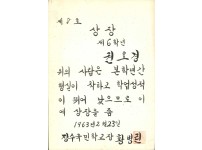 제 8 호
상장
제6학년
권오경
위의 사람은 본학년간
행실이 착하고 학업성적
이 뛰어 났으므로 이
에 상장을 줌
1963년 2월 23일
장수국민학교장 황방